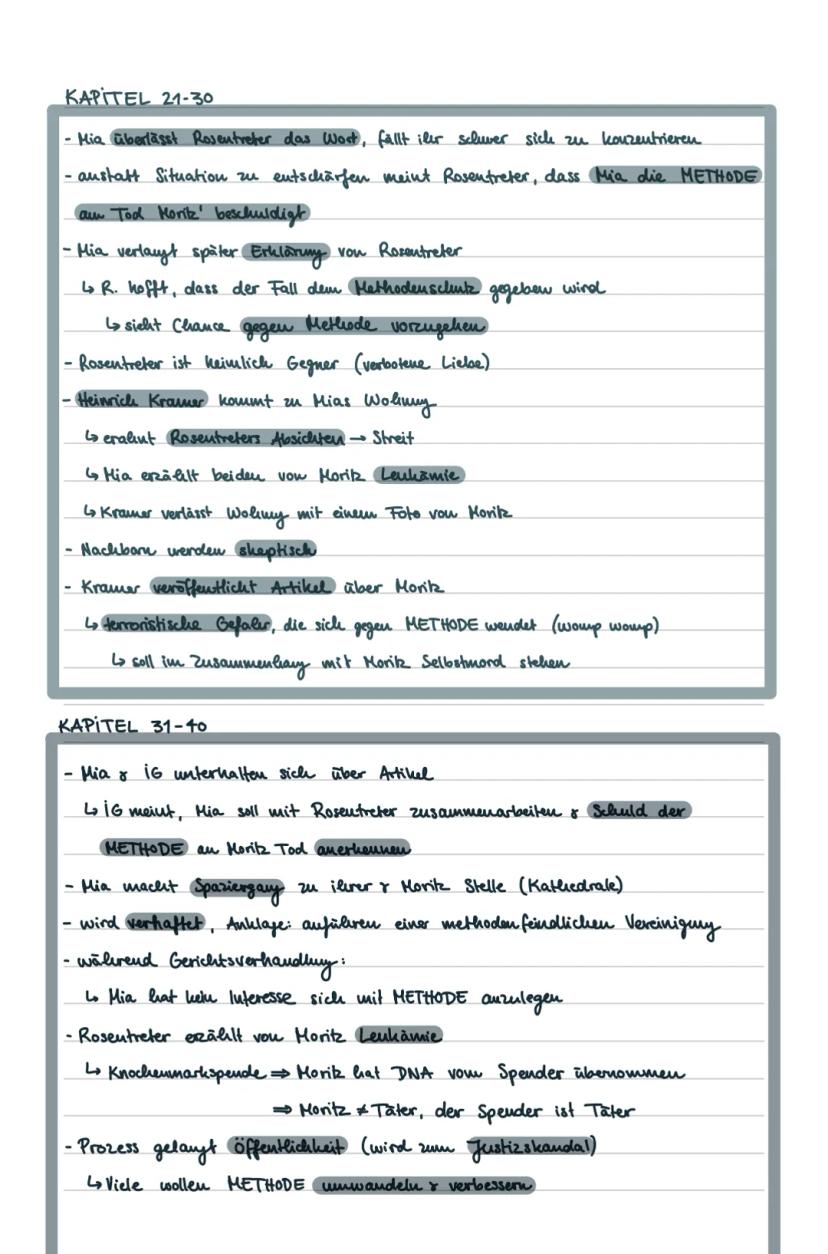 KAPITEL 21-30
- Mia überlässt Rosentreter das Wort, fällt ihr schwer sich zu konzentrieren
- anstatt Situation zu entschärfen meint Rosentreter, dass Mia die METHODE
am Tod Moritz' beschuldigt
- Mia verlangt später Erklärung von Rosentreter
↳ R. hofft, dass der Fall dem Methodenschutz gegeben wird
↳ sieht Chance gegen Methode vorzugehen
- Rosentreter ist heimlich Gegner (verbotene Liebe)
- Heinrich Kramer kommt zu Mias Wohnung
↳ erahnt Rosentreters Absichten → Streit
↳ Mia erzählt beiden von Moritz Leukämie
↳ Kramer verlässt Wohnung mit einem Foto von Moritz
- Nachbarn werden skeptisch
- Kramer veröffentlicht Artikel über Moritz
↳ terroristische Gefahr, die sich gegen METHODE wendet (womp womp)
↳ soll im Zusammenhang mit Moritz Selbstmord stehen
KAPITEL 31-40
- Mia & IG unterhalten sich über Artikel
↳ IG meint, Mia soll mit Rosentreter zusammenarbeiten & Schuld der
METHODE an Moritz Tod anerkennen
- Mia macht Spaziergang zu ihrer & Moritz Stelle (Kathedrale)
- wird verhaftet, Anklage: anführen einer methodenfeindlichen Vereinigung
- während Gerichtsverhandlung:
↳ Mia hat kein Interesse sich mit METHODE anzulegen
- Rosentreter erzählt von Moritz Leukämie
↳ Knochenmarkspende ⇒ Moritz hat DNA vom Spender übernommen
⇒ Moritz ≠ Täter, der Spender ist Täter
- Prozess gelangt öffentlichkeit (wird zum Justizskandal)
↳ Viele wollen METHODE umwandeln & verbessern